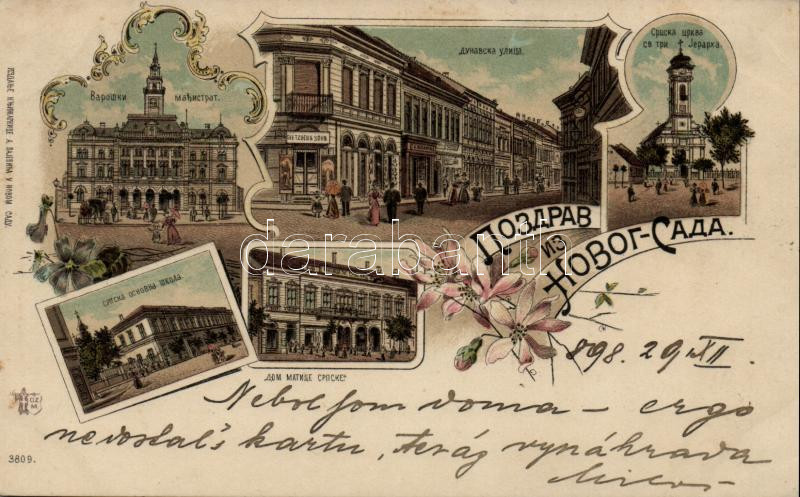 Варошки мађистрат.
Дунавска улица.
Српска црква
св. три Јерарха.
Издање књижарнице А. Пајевића у Новом Саду
Поздрав
из
Новог-Сада.
Српска основна школа.
Дом Матице српске.
darabanth
898. 29/XII.
Nebol som doma – ergo
nedostal's kartu, teráz vynáhrada
3809.